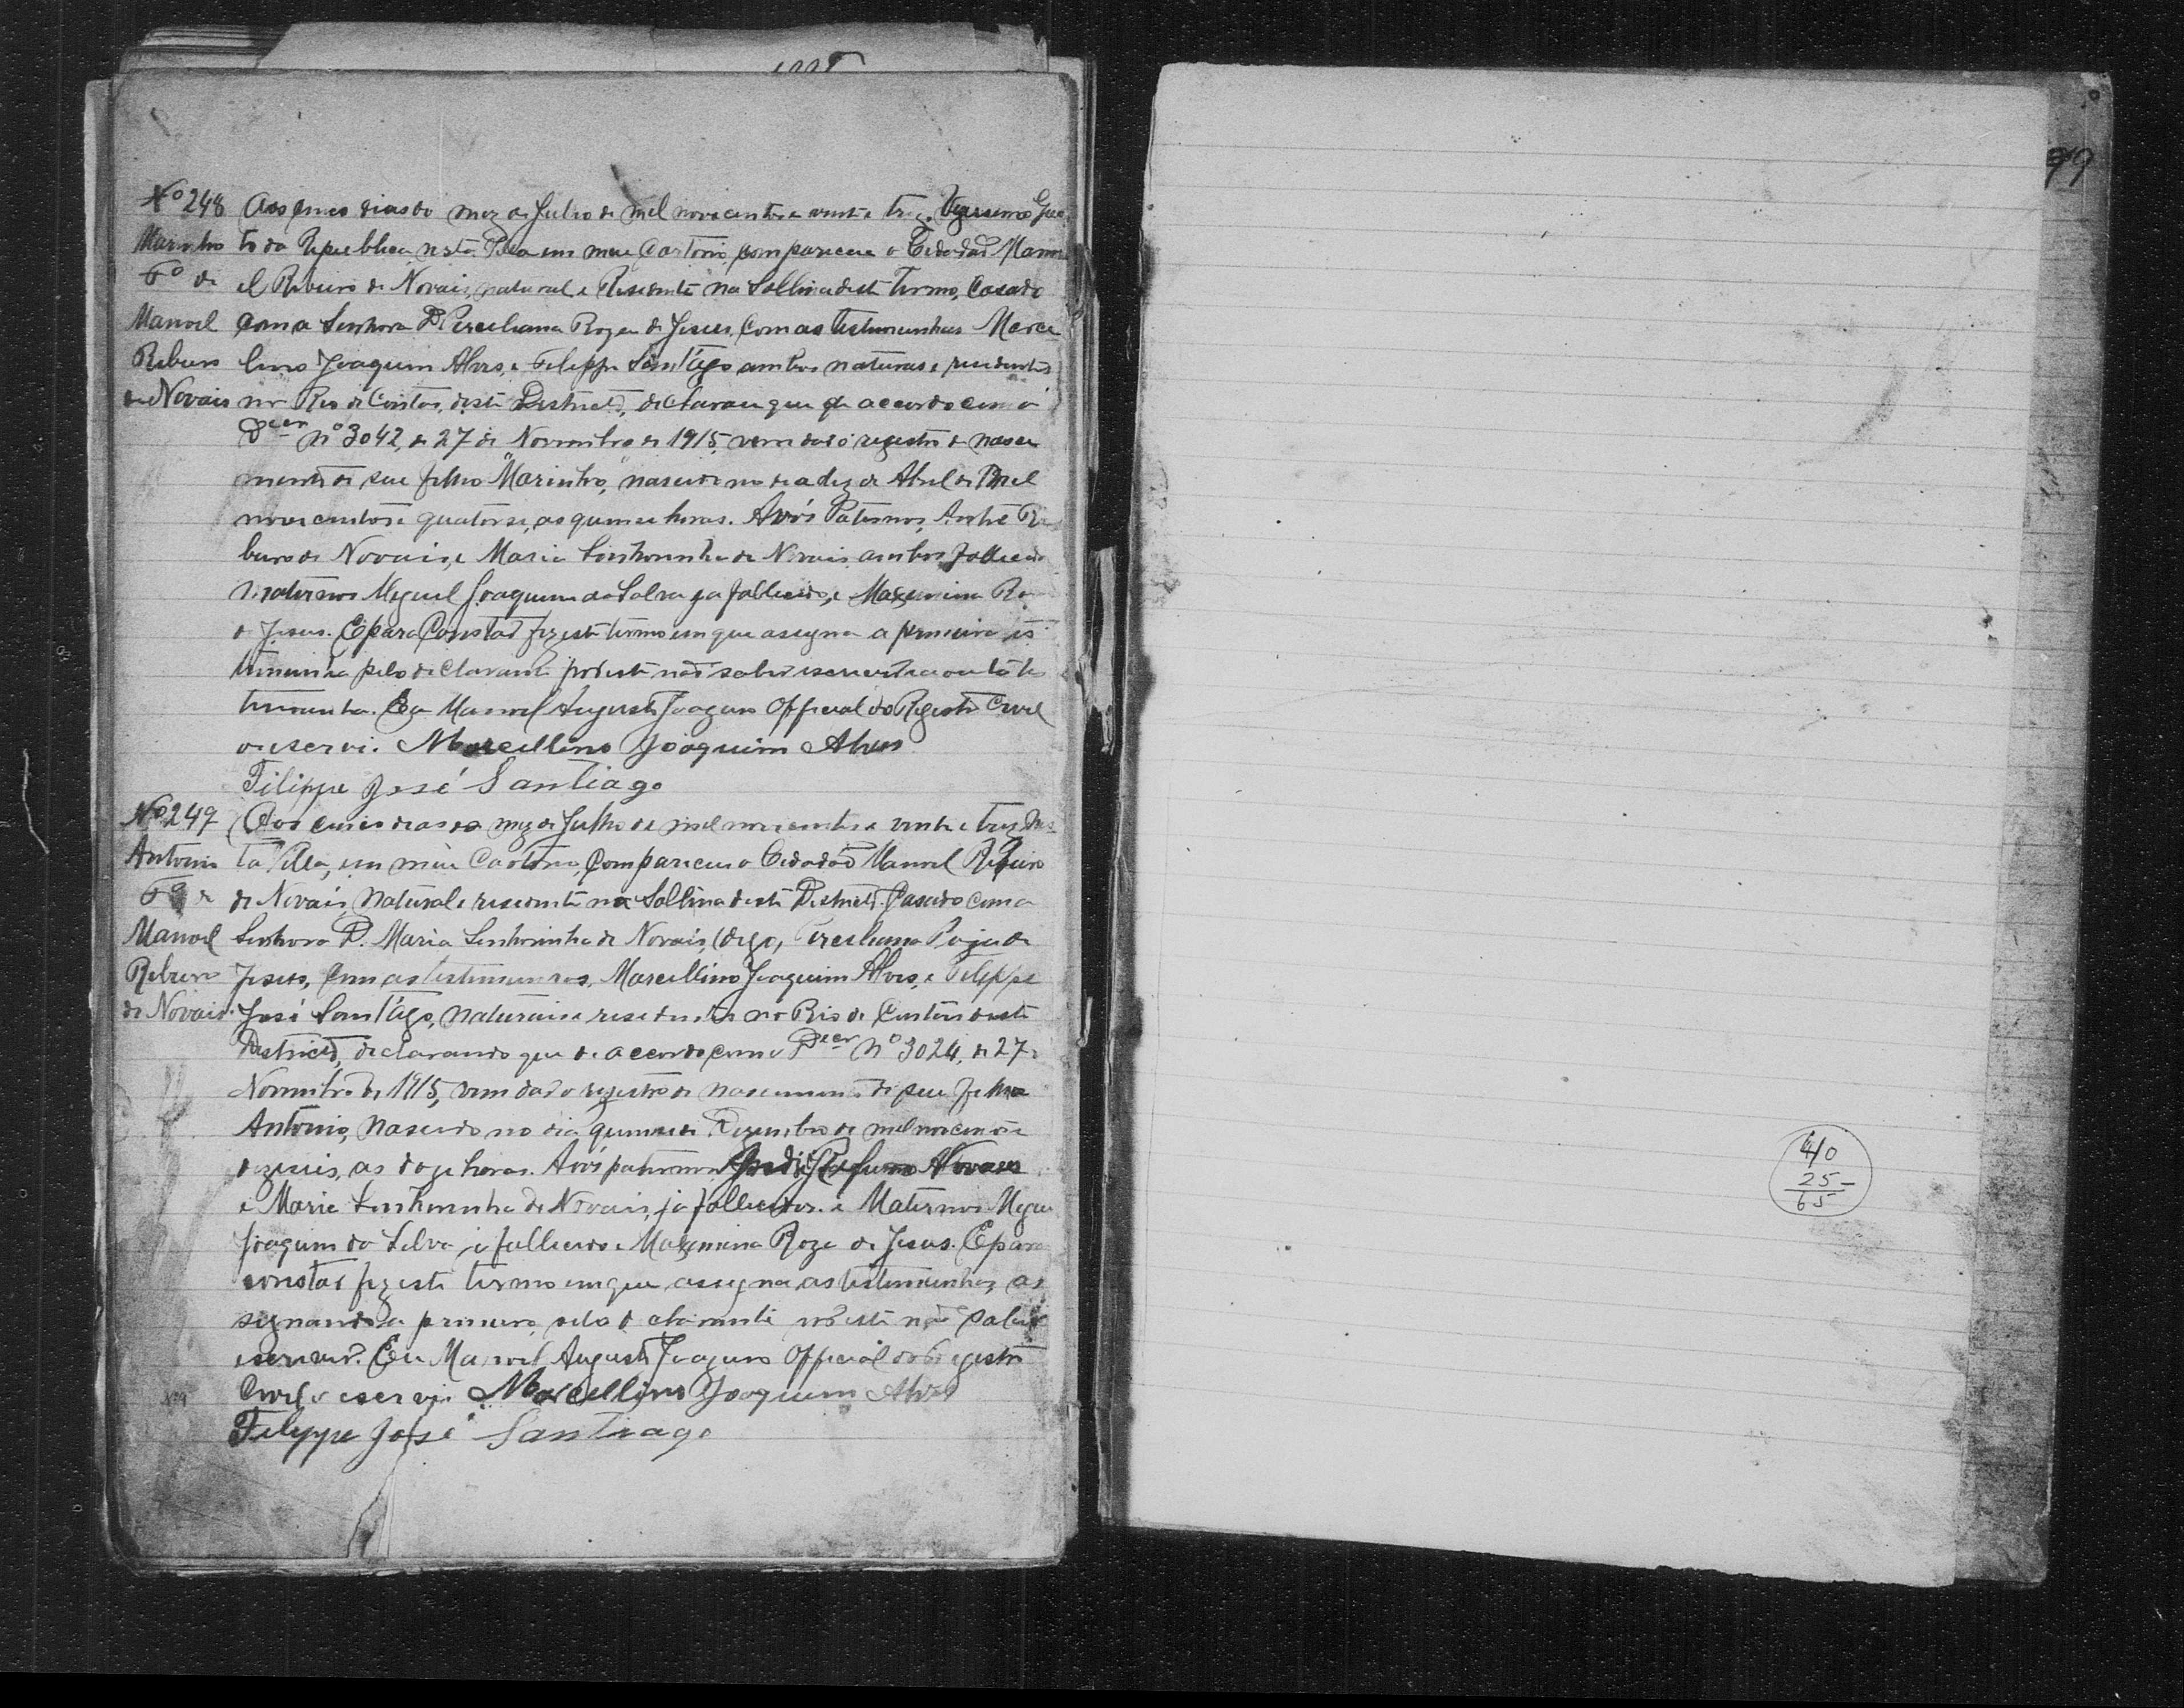 79
Nº 248 Aos cinco dias do mez de Julho de mil novecentos e vinte e trez, Vigessimo
Marinho to da Republica nesta Villa em meu Cartorio, compareceu o Cidadaõ Mano
Fº de el Ribeiro de Novais, natural e Residente na Sallina deste Termo, Casado
Manoel Com a Senhora D. Perciliana Roza de Jesus, Com as testimunhas Marcel
Ribeiro lino Joaquim Alves, e Filippe SantIago ambos naturais e residentes
de Novais no Rio de Contas, deste Districto, declarou que de accordo com o
Decr nº 3042, de 27 de Novembro de 1915, vem dar o registro de nasci
mento de seu filho "Marinho," nascido no dia dez de Abril de Mil
novecentos e quatorze, as quinze horas. Avós Paternos, André Ri
beiro de Novais, e Maria Senhorinha de Novais ambos fallecido
Maternos Miguel Joaquim da Silva ja fallecido, e Maximina Ro
de Jesus. E para Constar fiz este termo em que assigna a primeira tes
timunha pelo declarante por este naõ saber escrever e a outra tes
timunha. Eu Manoel Augusto Joaquim Official do Registro Civil
o escrevi. Marcellino Joaquim Alves
Filippe José Santiago
Nº 249 Aos cinco dias do mez de Julho de mil novecentos e vinte e trez Nes
Antonio ta Villa, em meu Cartorio, Compareceu o Cidadaõ Manoel Ribeiro
Fº de de Novais, Natural e residente na Sallina deste Districto. Casado com a
Manoel Senhora D. Maria Senhorinha de Novais, (digo, Perciliana Roza de
Ribeiro Jesus, Com as testimunhas, Marcellino Joaquim Alves, e Filippe
de Novais. José SantIago, naturais e residentes no Rio de Contas deste
Districto, declarando que de accordo com o Decr nº 3024, de 27 de
Novembro de 1915, vem dar o registro de nascimento de seu filho
Antonio, Nascido no dia quinze de Dezembro de mil novecentos e
dezeseis, as doze horas. Avós paternos Novaes
e Maria Senhorinha de Novais, ja fallecidos. e Maternos Migue
Joaquim da Silva ja fallecido e Maximina Roza de Jesus. E para
constar fiz este termo em que assigna as testimunhas, as
signando a primeira pelo declarante por este naõ saber
escrever. Eu Manoel Augusto Joaquim Official do Registro
Civil o escrevi. Marcellino Joaquim Alves
Filippe José Santiago
40
25-
65